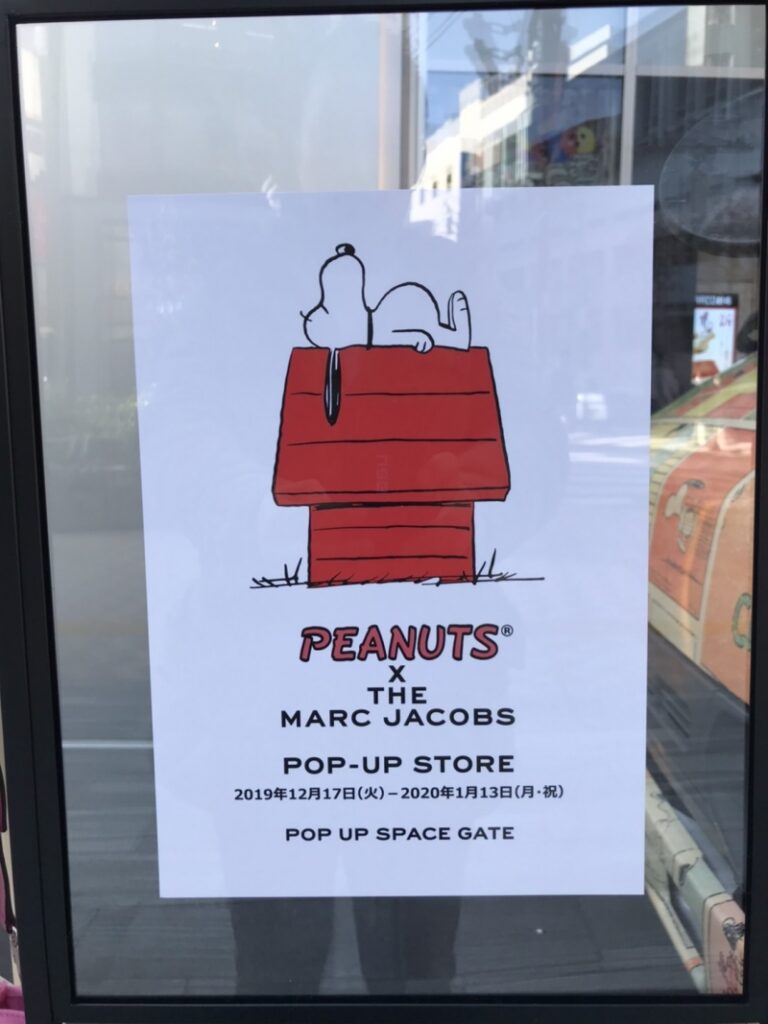 PEANUTS®
X
THE
MARC JACOBS
POP-UP STORE
2019年12月17日(火)－2020年1月13日(月・祝)
POP UP SPACE GATE